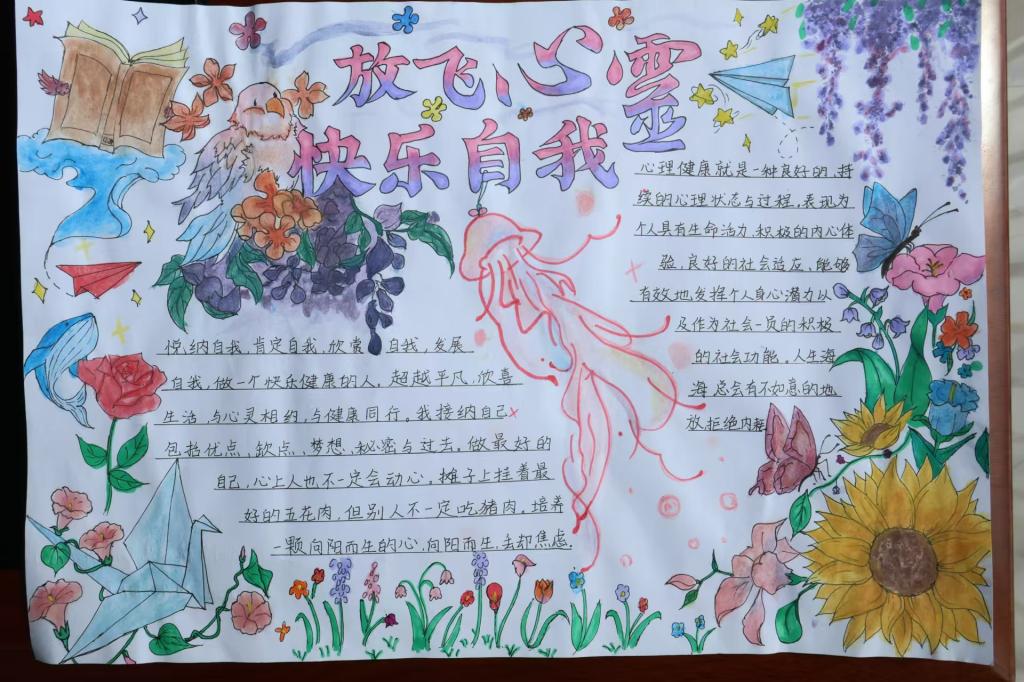 放飞心靈
快乐自我
心理健康就是一种良好的、持
续的心理状态与过程,表现为
个人具有生命活力、积极的内心体
验,良好的社会适应、能够
有效地发挥个人身心潜力以
及作为社会一员的积极
的社会功能。人生海
海总会有不如意的地
放,拒绝内耗
悦纳自我,肯定自我,欣赏自我,发展
自我,做一个快乐健康的人。超越平凡,欣喜
生活,与心灵相约,与健康同行。我接纳自己
包括优点、缺点、梦想、秘密与过去。做最好的
自己,心上人也不一定会动心。摊子上挂着最
好的五花肉,但别人不一定吃猪肉。培养
一颗向阳而生的心,向阳而生,去却焦虑.